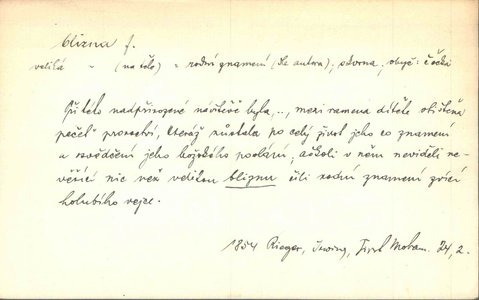 blizna f.
veliká " (na těle) = rodní znamení (dle autora); skvrna; obyč: čočka
Při této nadpřirozené návštěvě byla,.., mezi ramena dítěte otištěna
pečeť proroctví, kteráž zůstala po celý život jeho co znamení
a osvědčení jeho božského poslání; ačkoli v něm neviděli ne-
věřící nic než velikou bliznu čili rodní znamení zvící
holubího vejce.
1854 Rieger, Irving, Život Moham. 24, 2.